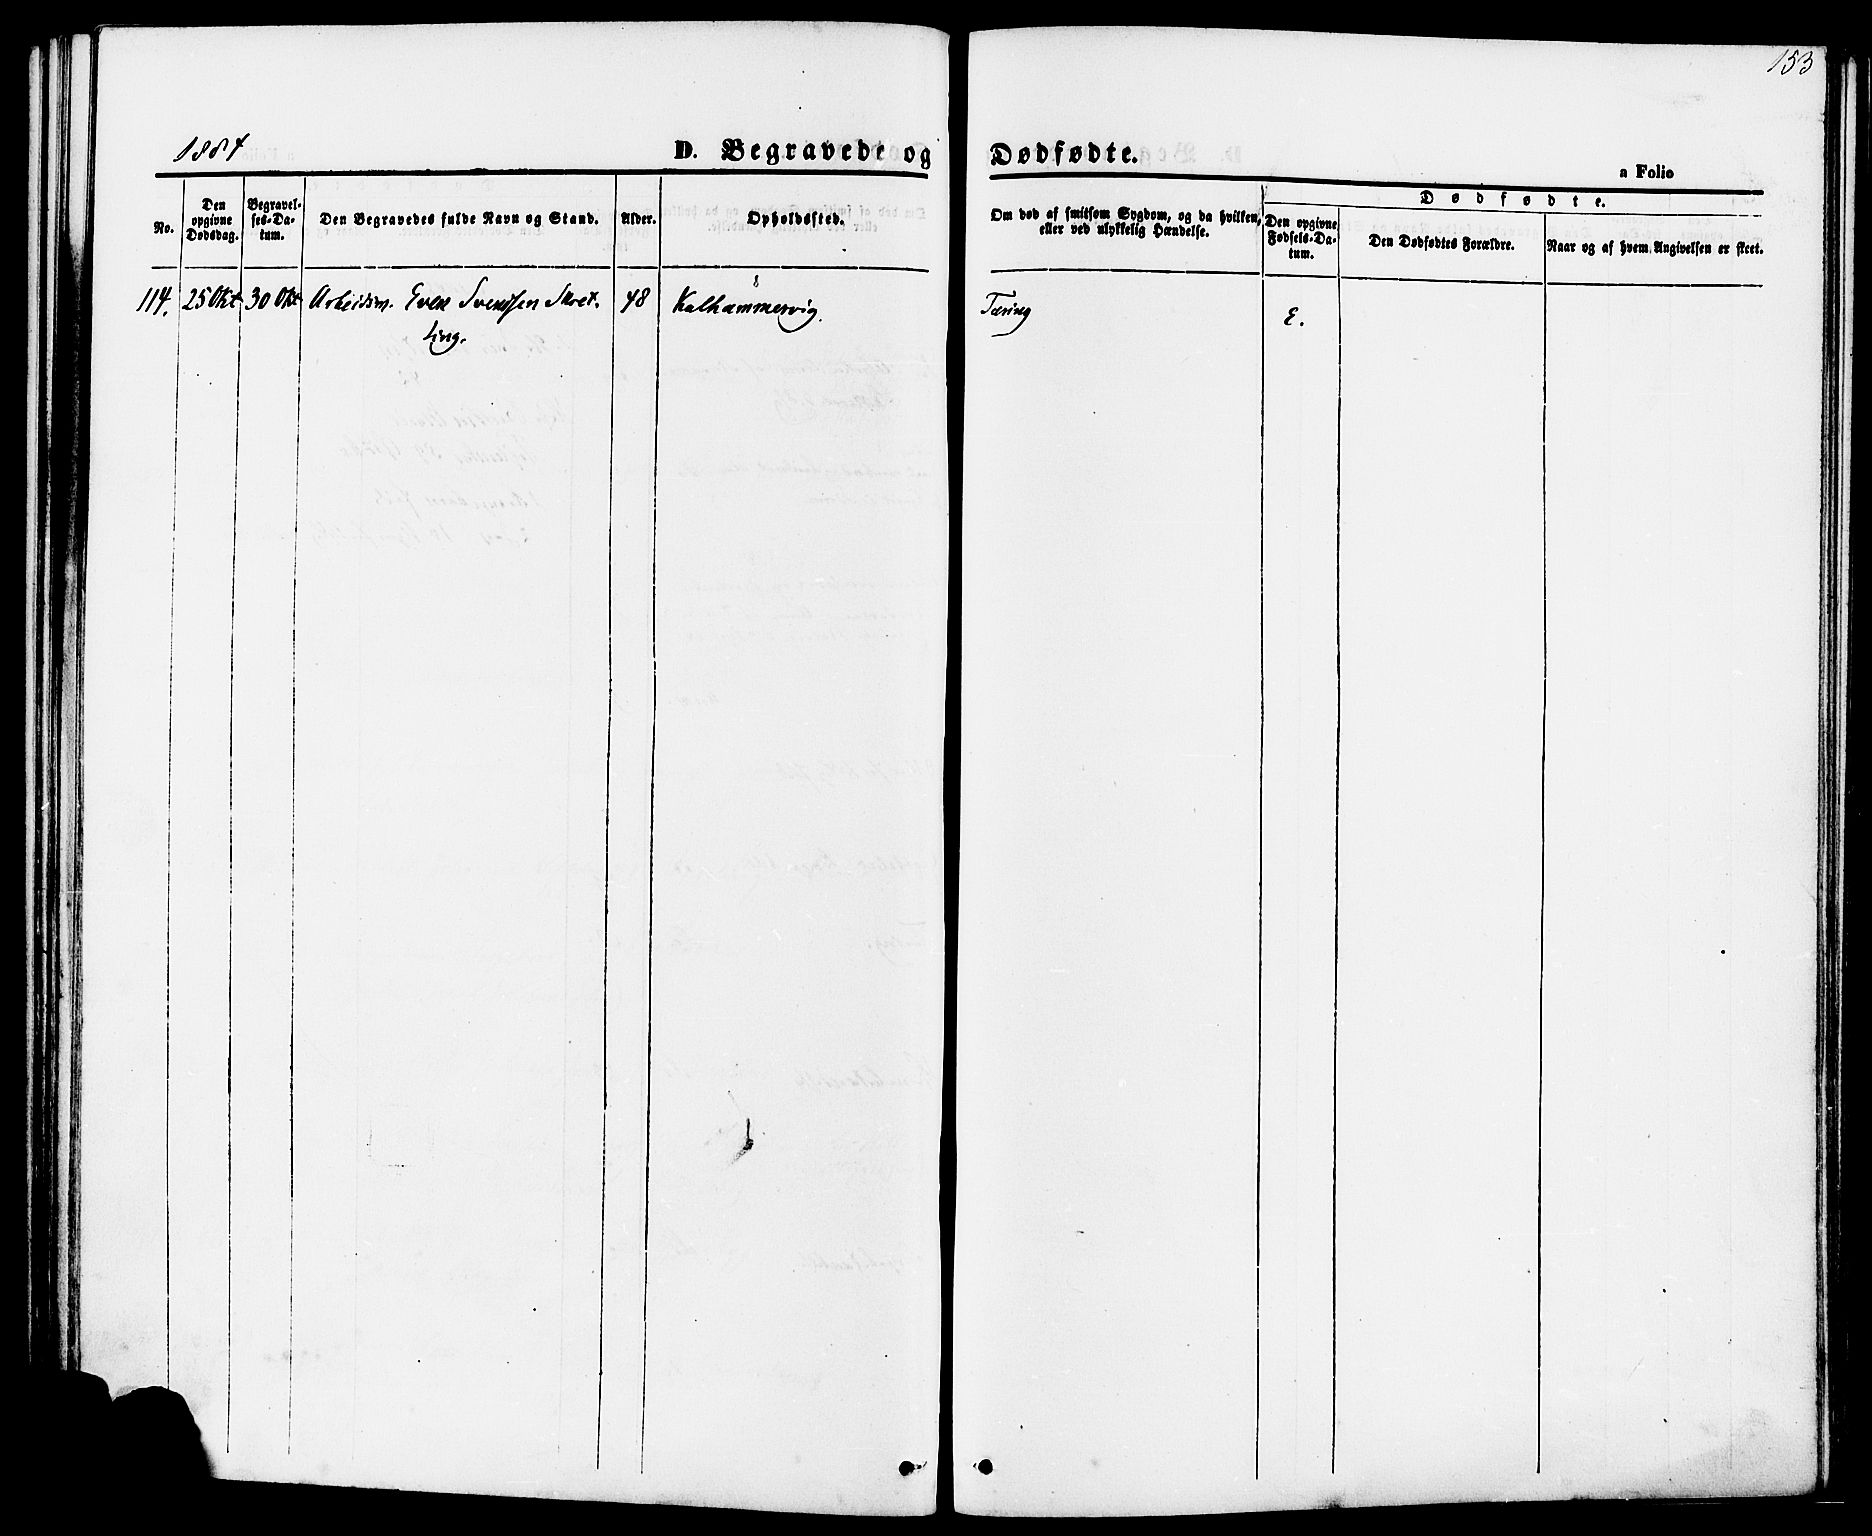 153
1884
D. Begravede og Dødfødte.
a Folio
No.
Den opgivne Dødsdag.
Begravelses-Datum.
Den Begravedes fulde Navn og Stand.
Alder.
Opholdssted.
Om død af smitsom Sygdom, og da hvilken,
eller ved ulykkelig Hændelse.
Dødfødte.
Den opgivne Fødsels-Datum.
Den Dødfødtes Forældre.
Naar og af hvem Angivelsen er skeet.
114. 25 Okt 30 Okt Arbeidsm. Even Svendsen Skret- 48 Kalhammervig. Tæring E.
ting.